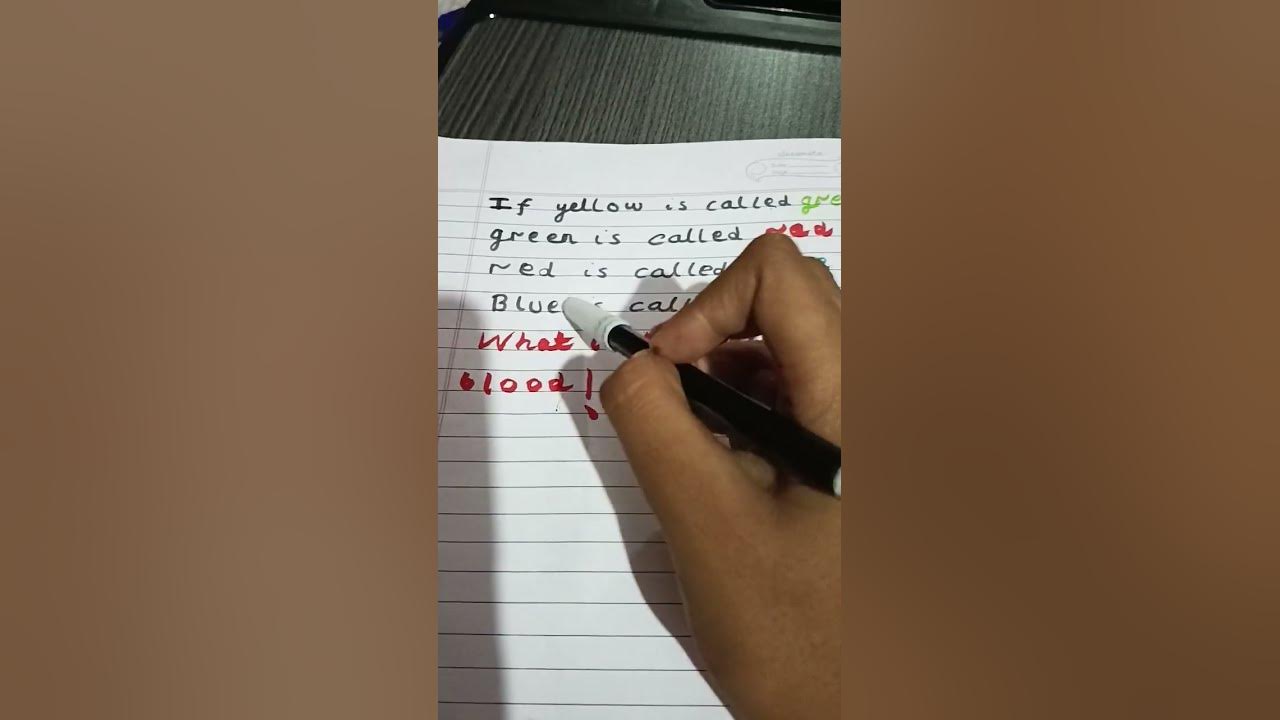 classmate
If yellow is called gre
green is called red
red is called
Blue is call
What
blood!